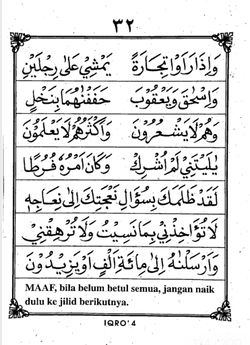 ٣٢
وَاِذَا رَاَوْا تِجَارَةً يَمْشِيْ عَلٰى رِجْلَيْنِ
وَاِسْحٰقَ وَيَعْقُوْبَ حَفَفْنٰهُمَا بِنَخْلٍ
وَهُمْ لَا يَشْعُرُوْنَ وَاَكْثَرُهُمْ لَا يَعْلَمُوْنَ
يٰلَيْتَنِيْ لَمْ اُشْرِكْ وَكَانَ اَمْرُهُ فُرُطًا
لَقَدْ ظَلَمَكَ بِسُؤَالِ نَعْجَتِكَ اِلٰى نِعَاجِهِ
لَا تُؤَاخِذْنِيْ بِمَا نَسِيْتُ وَلَا تُرْهِقْنِيْ
وَاَرْسَلْنٰهُ اِلٰى مِائَةِ اَلْفٍ اَوْ يَزِيْدُوْنَ
MAAF, bila belum betul semua, jangan naik
dulu ke jilid berikutnya.
IQRO' 4